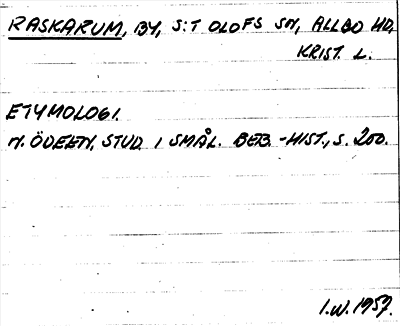 RASKARUM, BY, S:T OLOFS SN, ALLBO HD,
KRIST. L.
ETYMOLOGI.
N. ÖDEEN, STUD. I SMÅL. BEB.-HIST., S. 200.
I.W. 1957.